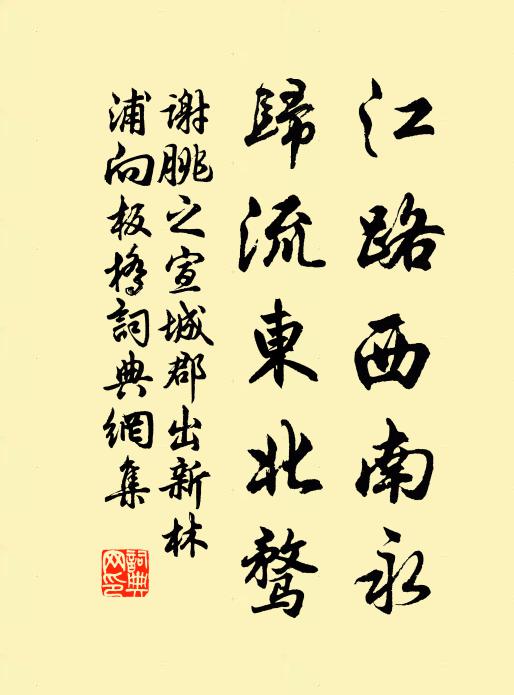 江路西南永
歸流東北騖
謝朓之宣城郡出新林
浦向板橋詞典網集
詞典
网印